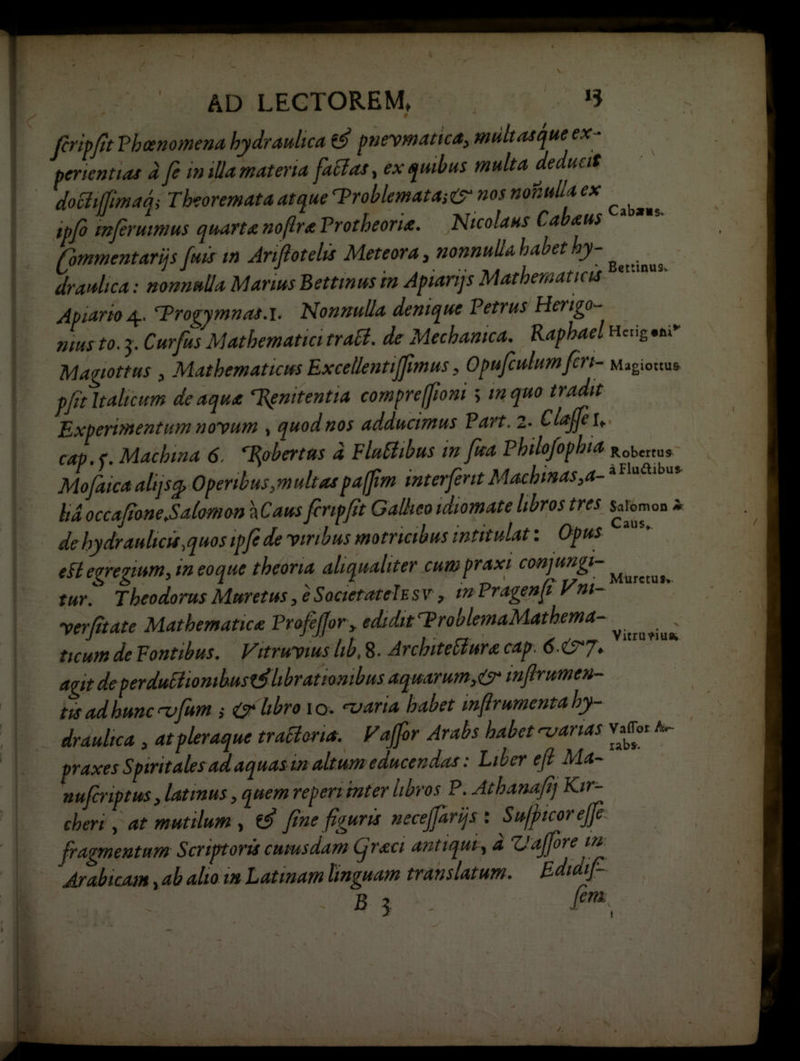 AD LECTOREM, 13
ſcripſit Phœnomena hydraulica & pnevmatica, multasque ex-
perientias à ſe in illa materia factas, ex quibus multa deducit
doctiſſimaq; Theoremata atque Problemata; & nos nōnulla ex
ipſo inſeruimus quartæ noſtræ Protheoriæ. Nicolaus Cabæus Cabæus.
Commentarijs ſuis in Ariſtotelis Meteora, nonnulla habet hy-
draulica: nonnulla Marius Bettinus in Apiarijs Mathematicis Bettinus.
Apiario 4. Progymnas. 1. Nonnulla denique Petrus Herigo-
nius to. 3. Curſus Mathematici tract. de Mechanica. Raphael Herigoni⁹
Magiottus, Mathematicus Excellentiſſimus, Opuſculum ſcri- Magiottus
pſit Italicum de aquæ Renitentia compreſſioni; in quo tradit
Experimentum novum, quod nos adducimus Part. 2. Claſſe 1.
cap. 5. Machina 6. Robertus à Fluctibus in ſua Philoſophia Robertus
Moſaica alijsq; Operibus, multas paſſim inſerit Machinas, a- à Fluctibus
liâ occaſione. Salomon à Caus ſcripſit Gallico idiomate libros tres Salomon à
de hydraulicis, quos ipſe de viribus motricibus intitulat: Opus Caus.
eſt egregium, in eoque theoria aliqualiter cum praxi conjungi-
tur. Theodorus Muretus, è Societate IESV, in Pragenſi Vni- Muretus.
verſitate Mathematicæ Profeſſor, edidit Problema Mathema-
ticum de Fontibus. Vitruvius lib. 8. Architecturæ cap. 6. & 7. Vitruvius.
agit de perductionibus & librationibus aquarum, & inſtrumen-
tis ad hunc uſum; & libro 10. varia habet inſtrumenta hy-
draulica, at pleraque tractoria. Vaſſor Arabs habet varias Vaſſor A-
praxes Spiritales ad aquas in altum educendas: Liber eſt Ma- rabs.
nuſcriptus, latinus, quem reperi inter libros P. Athanaſij Kir-
cheri, at mutilum, & ſine figuris neceſſarijs: Suſpicor eſſe
fragmentum Scriptoris cuiusdam Græci antiqui, à Vaſſore in
Arabicam, ab alio in Latinam linguam translatum. Edidiſ-
B 3 ſem